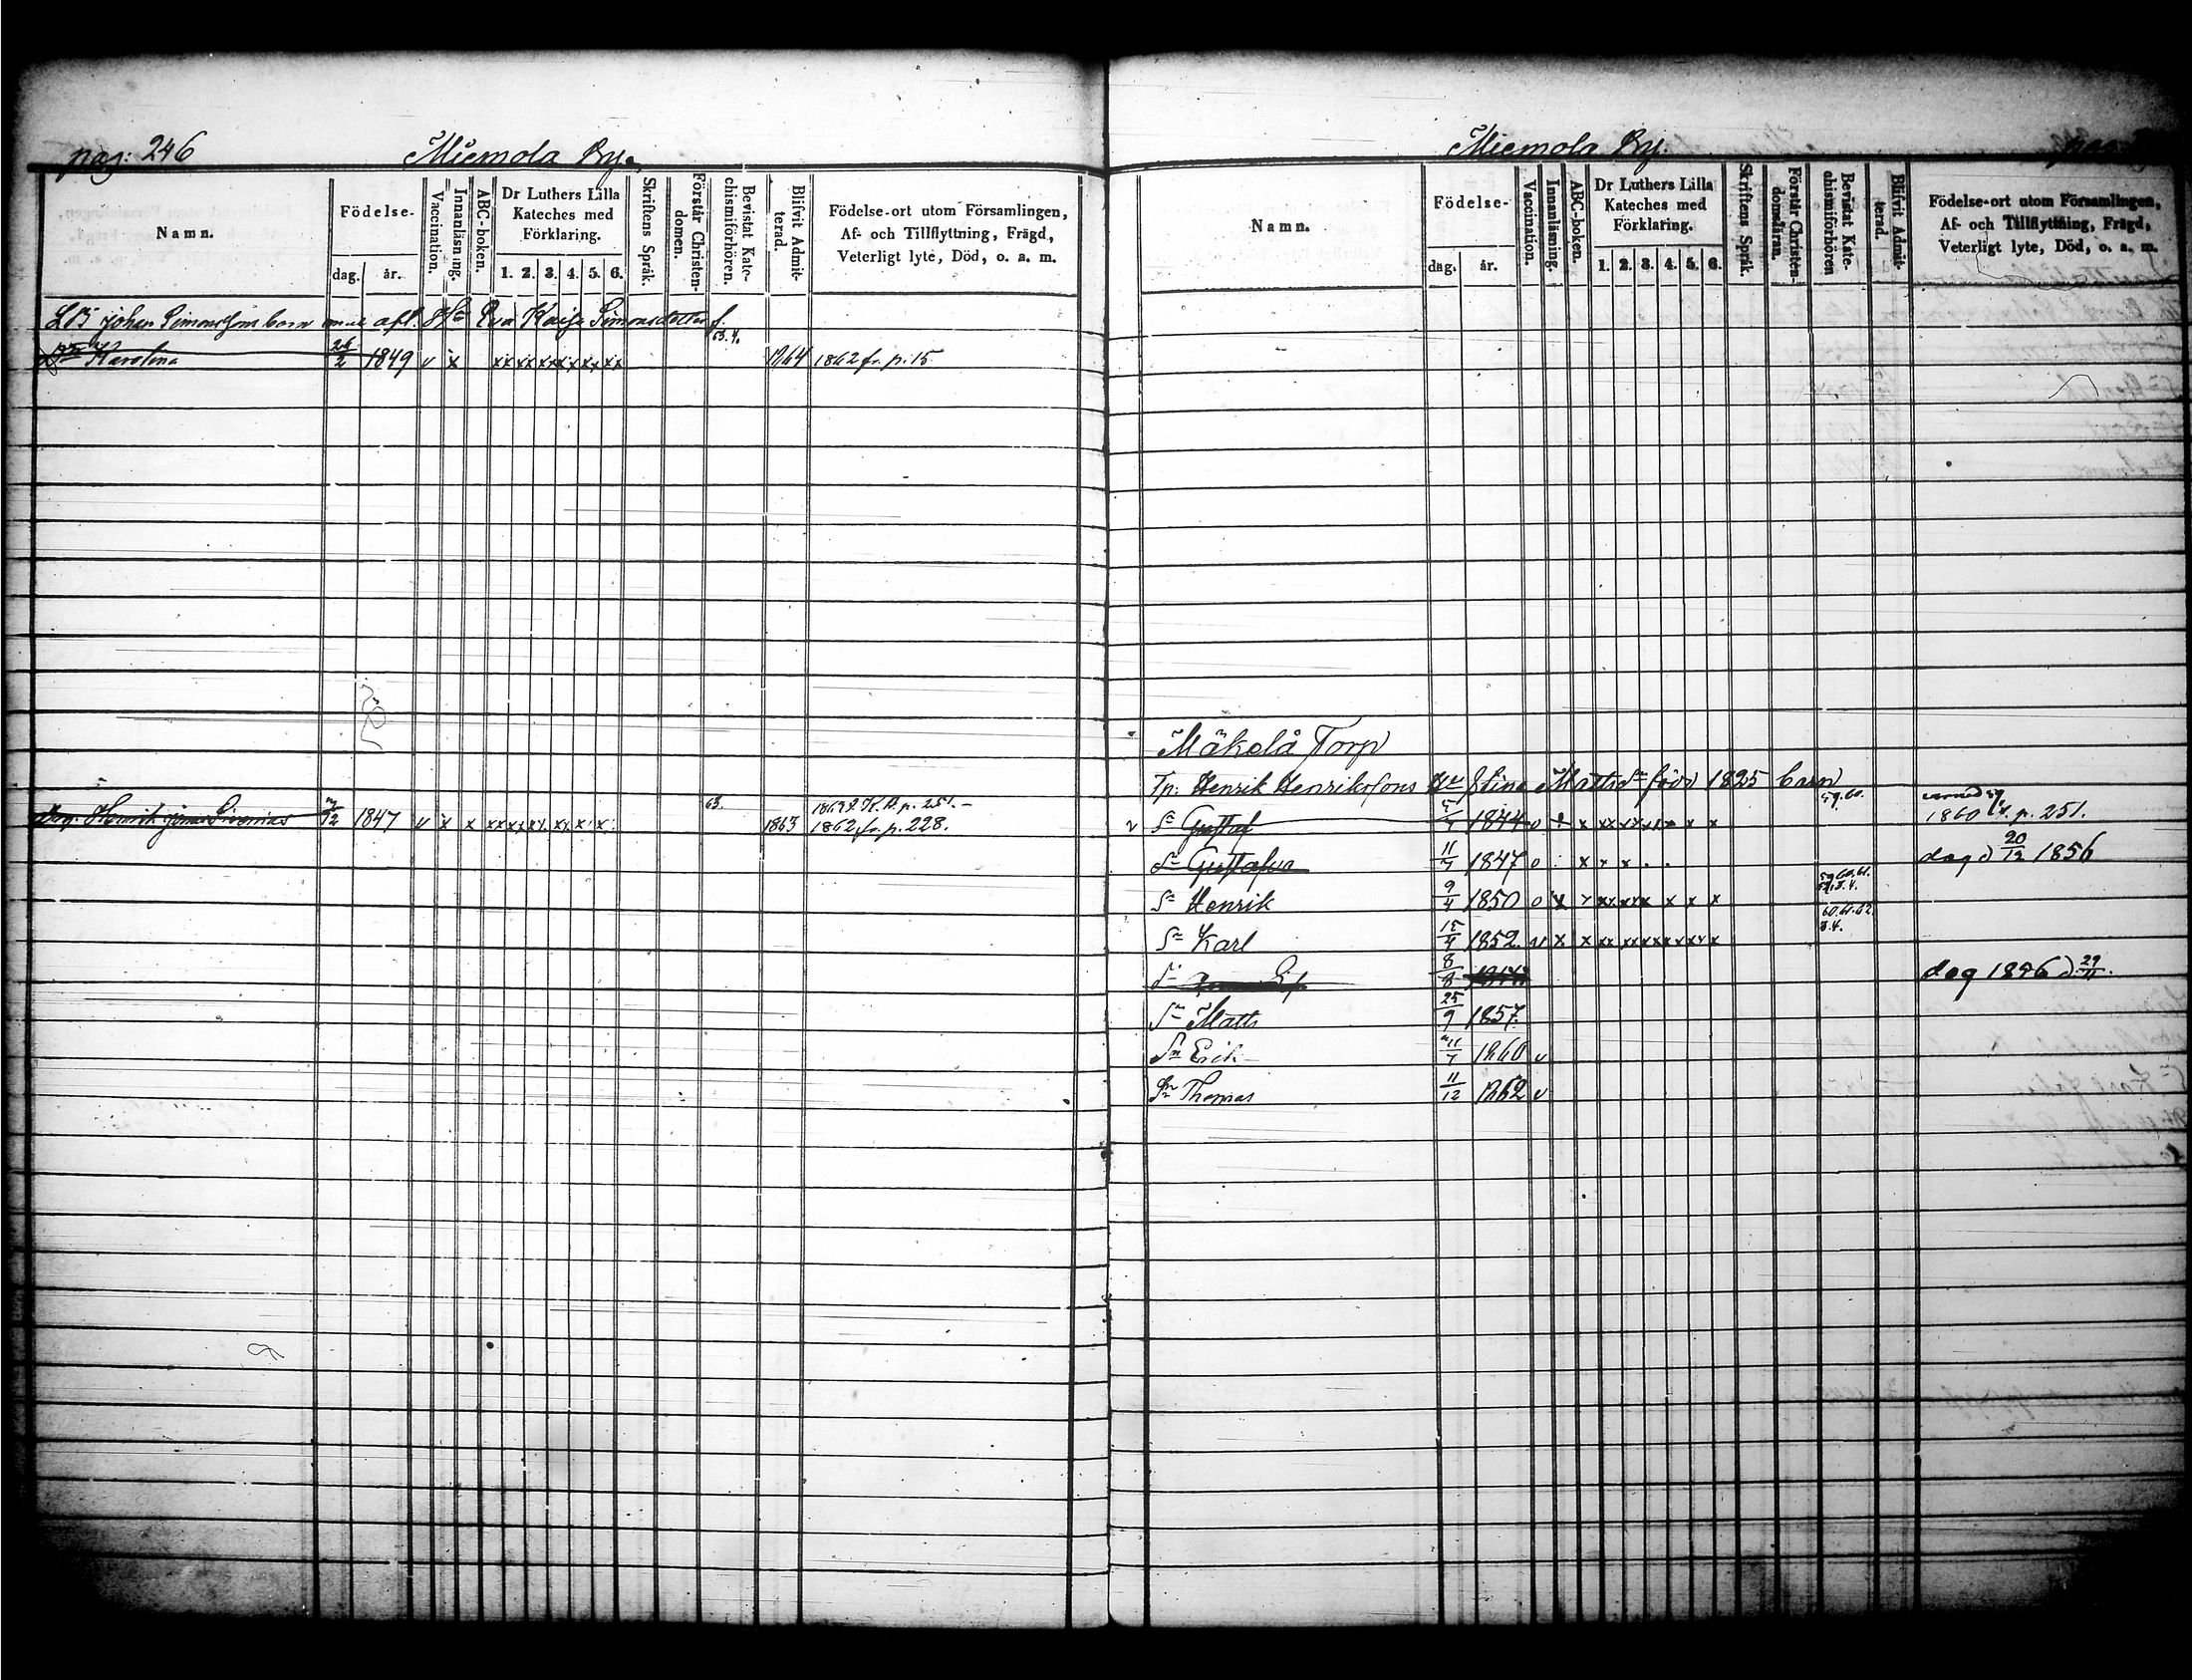 pag: 246
Miemola By.
Namn.
Födelse-
dag.
år.
Vaccination.
Innanläsning.
ABC-boken.
Dr Luthers Lilla
Kateches med
Förklaring.
1. 2. 3. 4. 5. 6.
Skriftens Språk.
Förstår Christen-
domen.
Bevistat Kate-
chismiförhören.
Blifvit Admit-
terad.
Födelse-ort utom Församlingen,
Af- och Tillflyttning, Frägd,
Veterligt lyte, Död, o. a. m.
johan Simonssons barn afl. Eva Kaisa Simonsdotter
63.4.
Karolina 26/2 1849 v x xx xx xxx x x x xx 1864 1862 fr. p. 15
63.
p. 251.
Drg. Henrik 1847 v x x xx xx xx xx x x 1863 1862 fr. p. 228.
Miemola By.
Namn.
Födelse-
dag.
år.
Vaccination.
Innanläsning.
ABC-boken.
Dr Luthers Lilla
Kateches med
Förklaring.
1. 2. 3. 4. 5. 6.
Skriftens Språk.
Förstår Christen-
domsläran.
Bevistat Kate-
chismiförhören
Blifvit Admit-
terad.
Födelse-ort utom Församlingen,
Af- och Tillflyttning, Frägd,
Veterligt lyte, Död, o. a. m.
Mäkelä Torp
Tp: Henrik Henrikssons Stina Mattsdr född 1825 barn
59.60.
Sn Gustaf 1844 v x xx xx x x x x 1860 p. 251.
Gustafva 11/7 1847 o x x x dog d 20/12 1856
59.60.61.
Sn Henrik 9/4 1850 o x x xx xx xx x x x
60.61.62
3.4.
Sn Karl 15/4 1852 v x x xx xx xx xx xx x
8/8 dog 1856 d. 29/11.
Sn Matts 25/9 1857.
Sn Erik 11/7 1860 v
Sn Thomas 11/12 1862 v